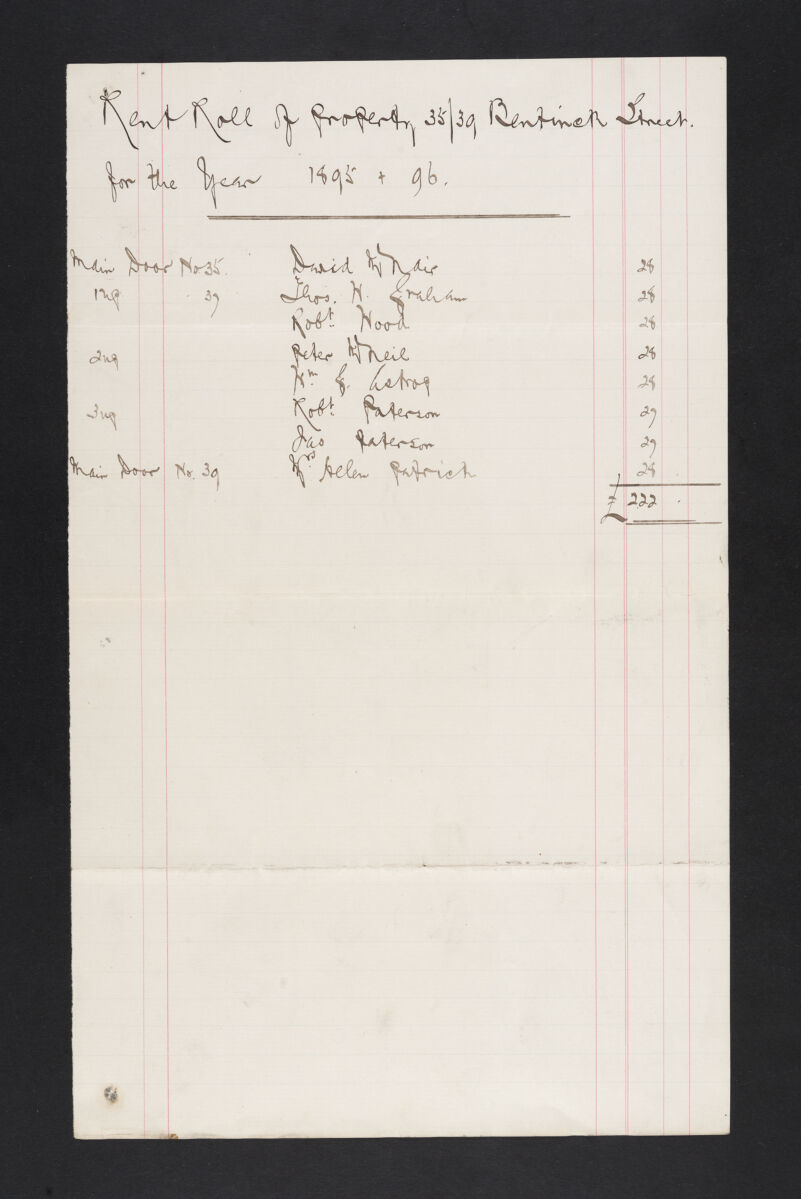 Rent Roll of property 35/39 Bentinck Street.
for the Year 1895 + 96.
Main Door No 35. David McNair 28
1 up 39 Thos. W. Graham 28
Robt. Wood 28
2 up Peter McNeil 28
Wm. G. 28
3 up Robt. Paterson 27
Jas Paterson 27
Main Door No. 39 Mrs Helen Patrick 28
£ 222 .